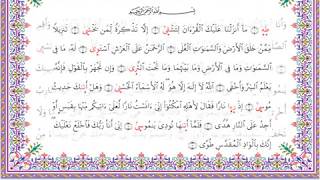 بسم الله الرحمن الرحيم
طه ۝ مَا أَنزَلْنَا عَلَيْكَ الْقُرْءَانَ لِتَشْقَىٰ ۝ إِلَّا تَذْكِرَةً لِّمَن يَخْشَىٰ ۝ تَنزِيلًا
مِّمَّنْ خَلَقَ الْأَرْضَ وَالسَّمَٰوَٰتِ الْعُلَى ۝ الرَّحْمَٰنُ عَلَى الْعَرْشِ اسْتَوَىٰ ۝ لَهُ مَا فِي
السَّمَٰوَٰتِ وَمَا فِي الْأَرْضِ وَمَا بَيْنَهُمَا وَمَا تَحْتَ الثَّرَىٰ ۝ وَإِن تَجْهَرْ بِالْقَوْلِ فَإِنَّهُ
يَعْلَمُ السِّرَّ وَأَخْفَى ۝ اللَّهُ لَا إِلَٰهَ إِلَّا هُوَ لَهُ الْأَسْمَاءُ الْحُسْنَىٰ ۝ وَهَلْ أَتَىٰكَ حَدِيثُ
مُوسَىٰ ۝ إِذْ رَءَا نَارًا فَقَالَ لِأَهْلِهِ امْكُثُوا إِنِّي ءَانَسْتُ نَارًا لَّعَلِّي ءَاتِيكُم مِّنْهَا بِقَبَسٍ أَوْ
أَجِدُ عَلَى النَّارِ هُدًى ۝ فَلَمَّا أَتَىٰهَا نُودِيَ يَٰمُوسَىٰ ۝ إِنِّي أَنَا رَبُّكَ فَاخْلَعْ نَعْلَيْكَ
إِنَّكَ بِالْوَادِ الْمُقَدَّسِ طُوًى ۝